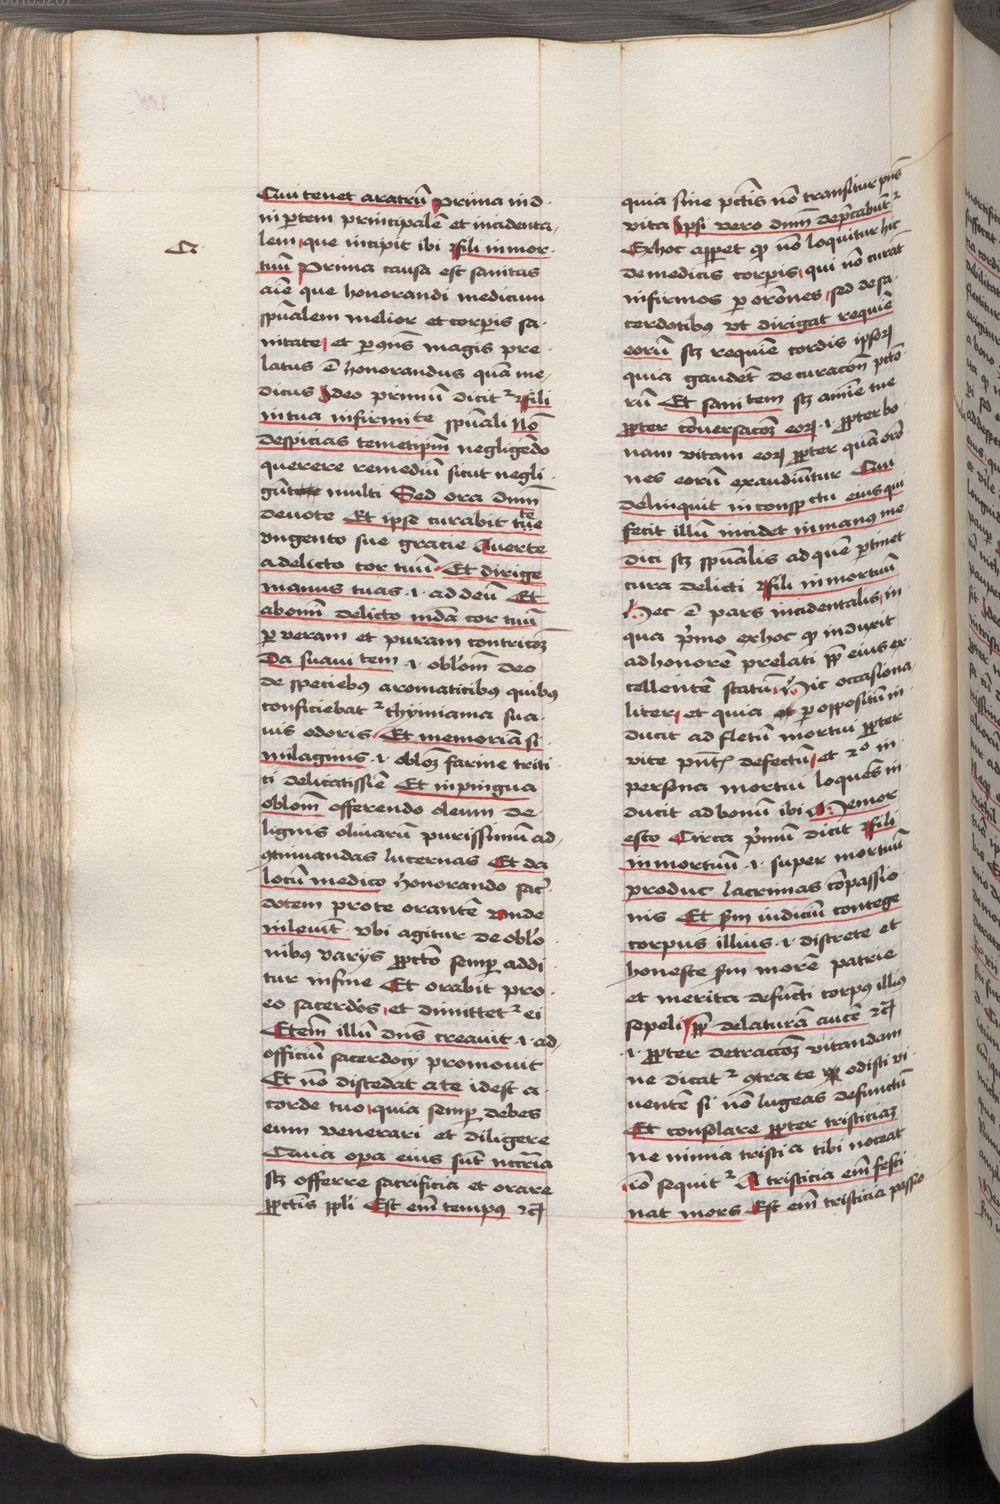 C
Cui tenet aratrū prima ind
in ꝑtem principalē et incidenta
lem que incipit ibi Fili in mor
tuū Prima causa est sanitas
aīe que honorandi medicum
spūalem melior et corꝑis sa
nitate et ꝑ 9n̄s magis pre
latus ē honorandus quam me
dicus Ideo primum dicit2 Fili
in tua infirmitate spūali No̅
despicias temetip̄m negligēdo
querere remediū sicut negli
gūt multi Sed ora dn̄m
deuote Et ipse curabit te
vngento sue gracie Auerte
a delicto cor tuū Et dirige
manus tuas ·i· ad deū Et
ab om̄i delicto mūda cor tuū
ꝑ veram et puram contricōȝ
Da suaui tem ·i· obl'om̄ deo
de speciebus aromaticibus quibus
conficiebat2 thymiama sua
uis odoris Et memoriam si
milaginis ·i· obloȝ farine triti
ci delicatissiē Et inpingua
oblōm offerendo oleum de
lignis oliuarū purissimum ad
9tinuandas lucernas Et da
locum medico honorando sac̄
dotem pro te orantē vnde
in leuit' vbi agitur de obl'o
nibus varijs ꝓ pctō semꝑ addi
tur in fine Et orabit pro
eo sacerdos et dimittet2 ei
Etem̄ illū dn̄s creauit ·i· ad
officiū sacerdocij promouit
Et nō discedat a te idest a
corde tuo quia semꝑ debes
eum venerari et diligere
Quia oꝑa eius sūt nccr̄ia
scȝ offerre sacrificia et orare
ꝓ pctīs ppl̄i Est em̄ tempus ⁊cꝫ
quia sine pctīs nō transitur pn̄s
vita Ipsi vero dn̄m deꝑcabūt2
Ex hoc apparet ꝙ nō loquitur hic
de medicis corꝑis qui nō curāt
infirmos ꝑ orōnes sed de sa
cerdotibus vt dirigat requiē
eorū scȝ requiē cordis ipsoꝝ
quia gaudēt de curacōn̄ pctō
rū Et sani tem scȝ anime tue
ꝓpter 9uersacōȝ eoꝝ ·i· ꝓpter bo
nam vitam eoꝝ ꝓpter quā orō
nes eorū exaudiūtur Qui
delinquit in conspctu eius qui
fecit illū incidet in manus me
dici scȝ spūalis ad quē ꝑtinet
cura delicti Fili in mortuū
Hec ē pars incidentalis in
qua p̄mo ex hoc ꝙ induxit
ad honorē prelati ꝓp̄ eius ex
cellentē statū Hic occasiona
liter et quia ꝑ oppositū in
ducit ad fletū mortui ꝓpter
vite pn̄tꝭ defectū et 2o in
persona mortui loquēs in
ducit ad bonū ibi Memor
esto Circa p̄mū dicit Fili
in mortuū ·i· super mortuū
produc lacrimas cōpassio
nis Et s̄m iudiciū contege
corpus illius ·i· discrete et
honeste s̄m morē patrie
et merita defūcti corpus illius
sepeli ꝓp̄ delaturā aūtē ⁊cꝫ
·i· ꝓpter detraccōȝ vitandam
ne dicat2 9tra te odisti vi
uentē si nō lugeas defunctū
Et consolare ꝓpter tristiciaȝ
ne nimia tristicia tibi noceat
iō sequit2 A tristicia em̄ festi
nat mors Est em̄ tristicia passio